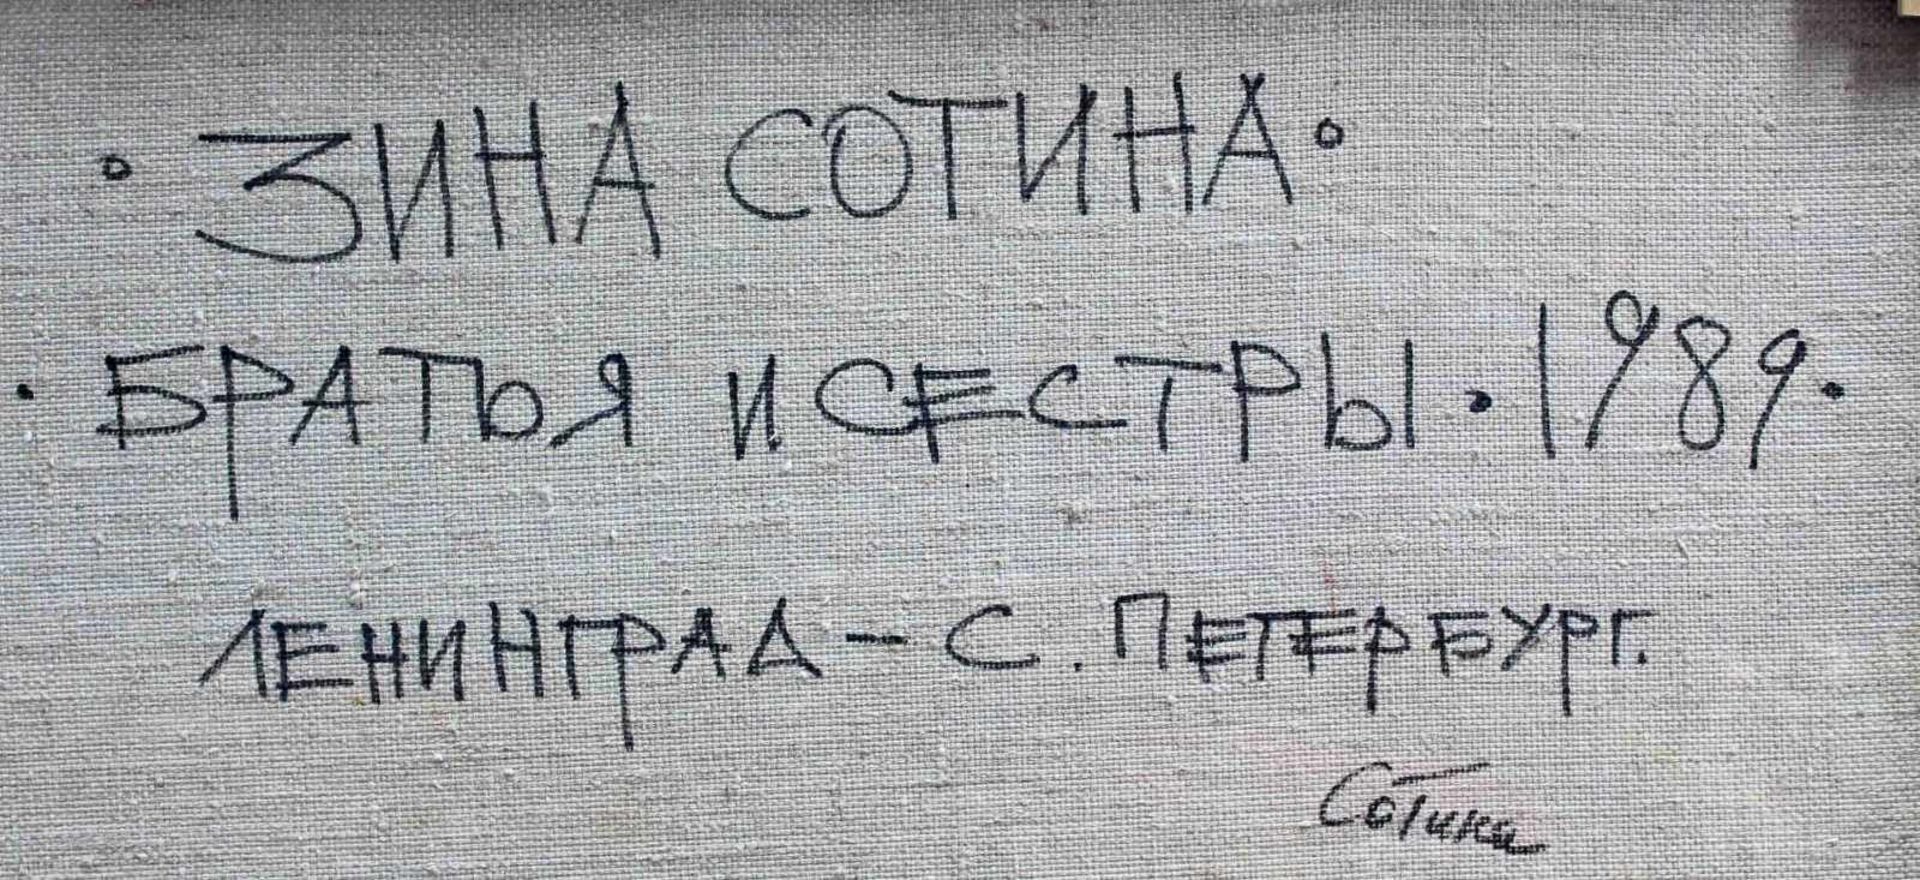 • ЗИНА СОТИНА •
• БРАТЬЯ И СЕСТРЫ • 1989 •
ЛЕНИНГРАД – С. ПЕТЕРБУРГ.
Сотина